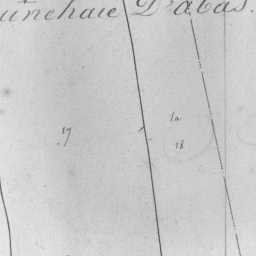 unehaie D'abas.
1a
17 18